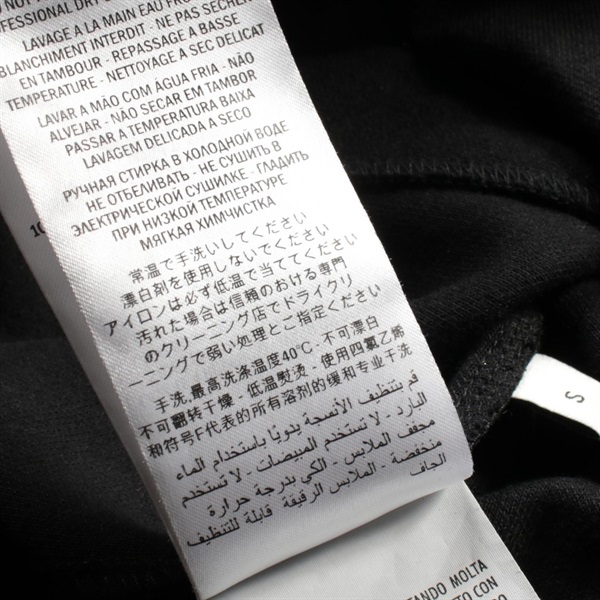 DO NOT
PROFESSIONAL DRY
LAVAGE A LA MAIN EAU
BLANCHIMENT INTERDIT - NE PAS SECHER
EN TAMBOUR - REPASSAGE A BASSE
TEMPERATURE - NETTOYAGE A SEC DELICAT
LAVAR A MÃO COM ÁGUA FRIA - NÃO
ALVEJAR - NÃO SECAR EM TAMBOR
PASSAR A TEMPERATURA BAIXA
LAVAGEM DELICADA A SECO
РУЧНАЯ СТИРКА В ХОЛОДНОЙ ВОДЕ
НЕ ОТБЕЛИВАТЬ - НЕ СУШИТЬ В
ЭЛЕКТРИЧЕСКОЙ СУШИЛКЕ - ГЛАДИТЬ
ПРИ НИЗКОЙ ТЕМПЕРАТУРЕ
МЯГКАЯ ХИМЧИСТКА
常温で手洗いしてください
漂白剤を使用しないでください
アイロンは必ず低温で当ててください
汚れた場合は信頼のおける専門
のクリーニング店でドライクリ
ーニングで弱い処理とご指定ください
手洗,最高洗涤温度40℃ - 不可漂白
不可翻转干燥 - 低温熨烫 - 使用四氯乙烯
和符号F代表的所有溶剂的缓和专业干洗
قم بتنظيف الأنسجة يدويًا باستخدام الماء
البارد - لا تستخدم المبيضات - لا تستخدم
مجفف الملابس - الكي بدرجة حرارة
منخفضة - الملابس الرقيقة قابلة للتنظيف
الجاف
10
S
TANDO MOLTA
TO CON